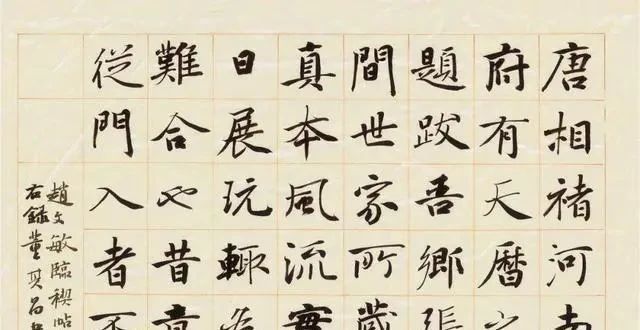 唐相褚河南
府有天曆
題跋吾鄉張
間世家所藏
真本風流實
日展玩輒為
難合也昔章
從門入者不
趙文敏臨禊帖
右錄董其昌